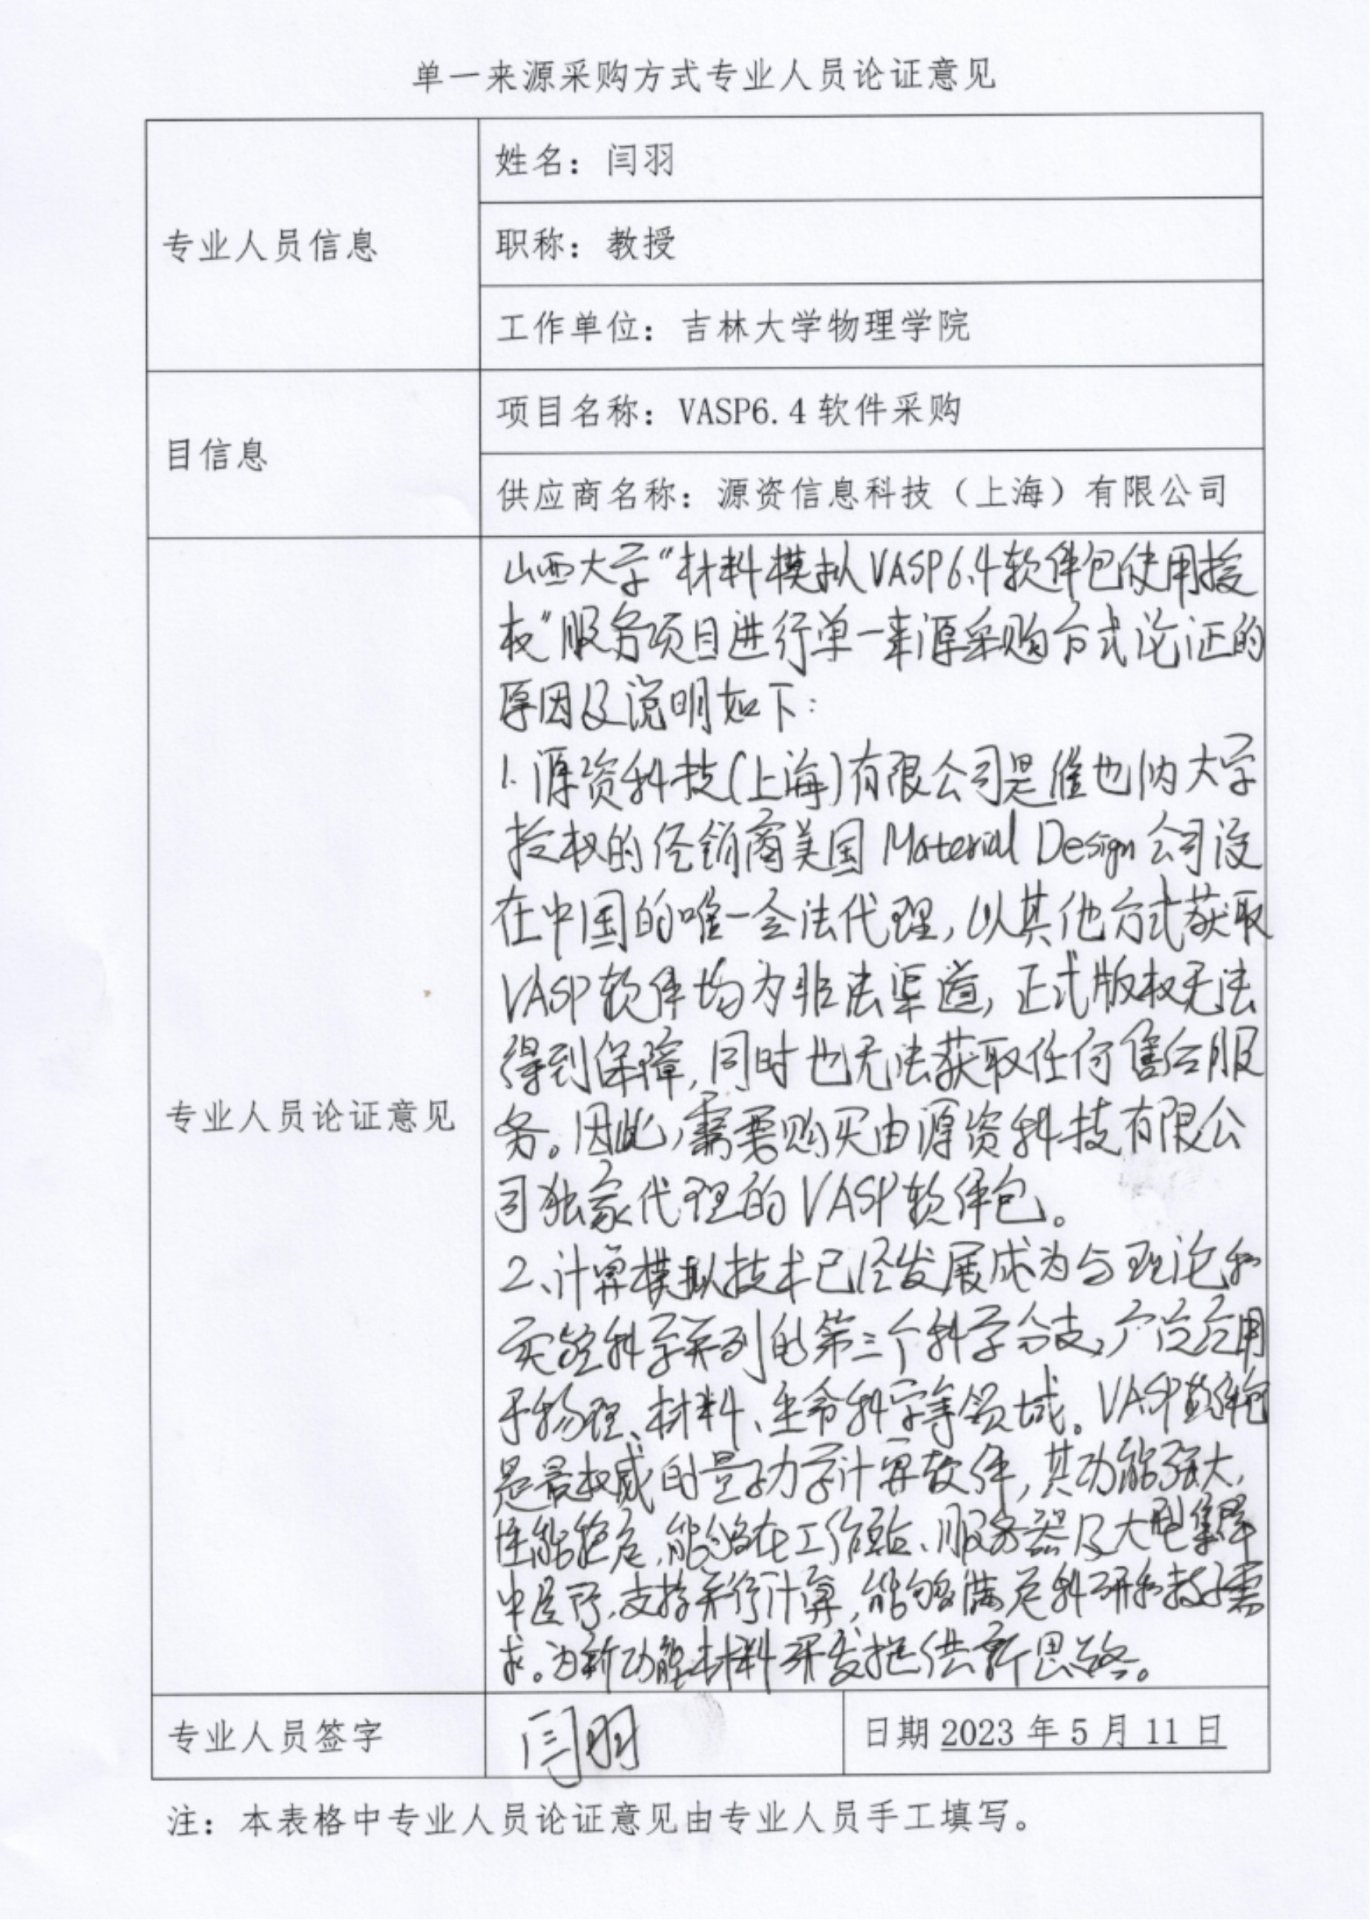 单一来源采购方式专业人员论证意见
专业人员信息
姓名：闫羽
职称：教授
工作单位：吉林大学物理学院
目信息
项目名称：VASP6.4软件采购
供应商名称：源资信息科技（上海）有限公司
专业人员论证意见
山西大学“材料模拟VASP6.4软件包使用授
权”服务项目进行单一来源采购方式论证的
原因及说明如下：
1.源资科技(上海)有限公司是维也纳大学
授权的经销商美国Material Design公司设
在中国的唯一合法代理,以其他方式获取
VASP软件均为非法渠道,正式版权无法
得到保障,同时也无法获取任何售后服
务。因此,需要购买由源资科技有限公
司独家代理的VASP软件包。
2、计算模拟技术已经发展成为与理论和
实验科学并列的第三个科学分支,广泛应用
于物理、材料、生命科学等领域。VASP软件包
是最权威的量子力学计算软件,其功能强大,
性能稳定,能够在工作站、服务器及大型集群
中运行,支持并行计算,能够满足科研和教学需
求。为新功能材料研发提供新思路。
专业人员签字
闫羽
日期2023年5月11日
注：本表格中专业人员论证意见由专业人员手工填写。